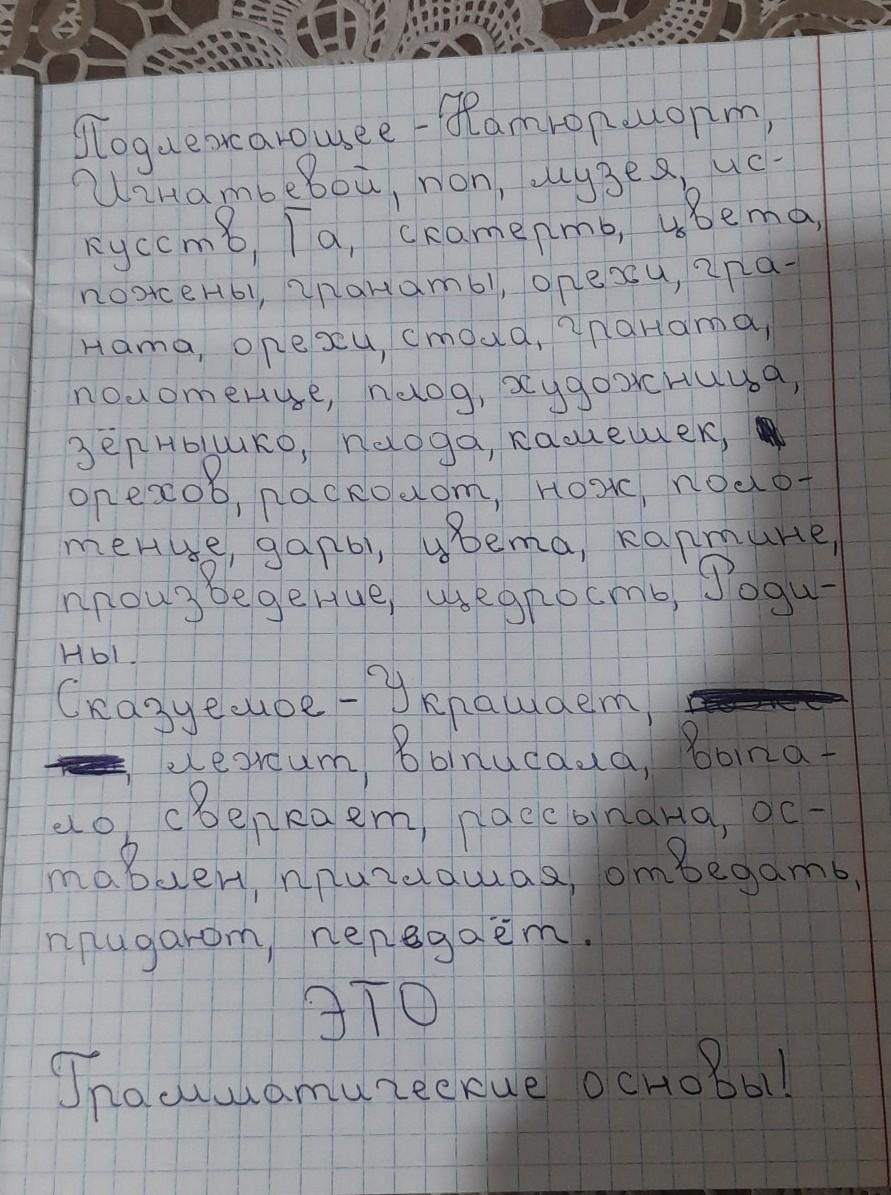 Подлежающее - Натюрморт,
Игнатьевой, поп, музея, ис-
кусств, Га, скатерть, цвета,
пожены, гранаты, орехи, гра-
ната, орехи, стола, граната,
полотенце, плод, художница,
зёрнышко, плода, камешек,
орехов, расколот, нож, поло-
тенце, дары, цвета, картине,
произведение, щедрость, Роди-
ны.
Сказуемое - Украшает,
, лежит, выписала, выпа-
ло, сверкает, рассыпана, ос-
тавлен, приглашая, отведать,
придают, передаёт.
ЭТО
Грамматические основы!